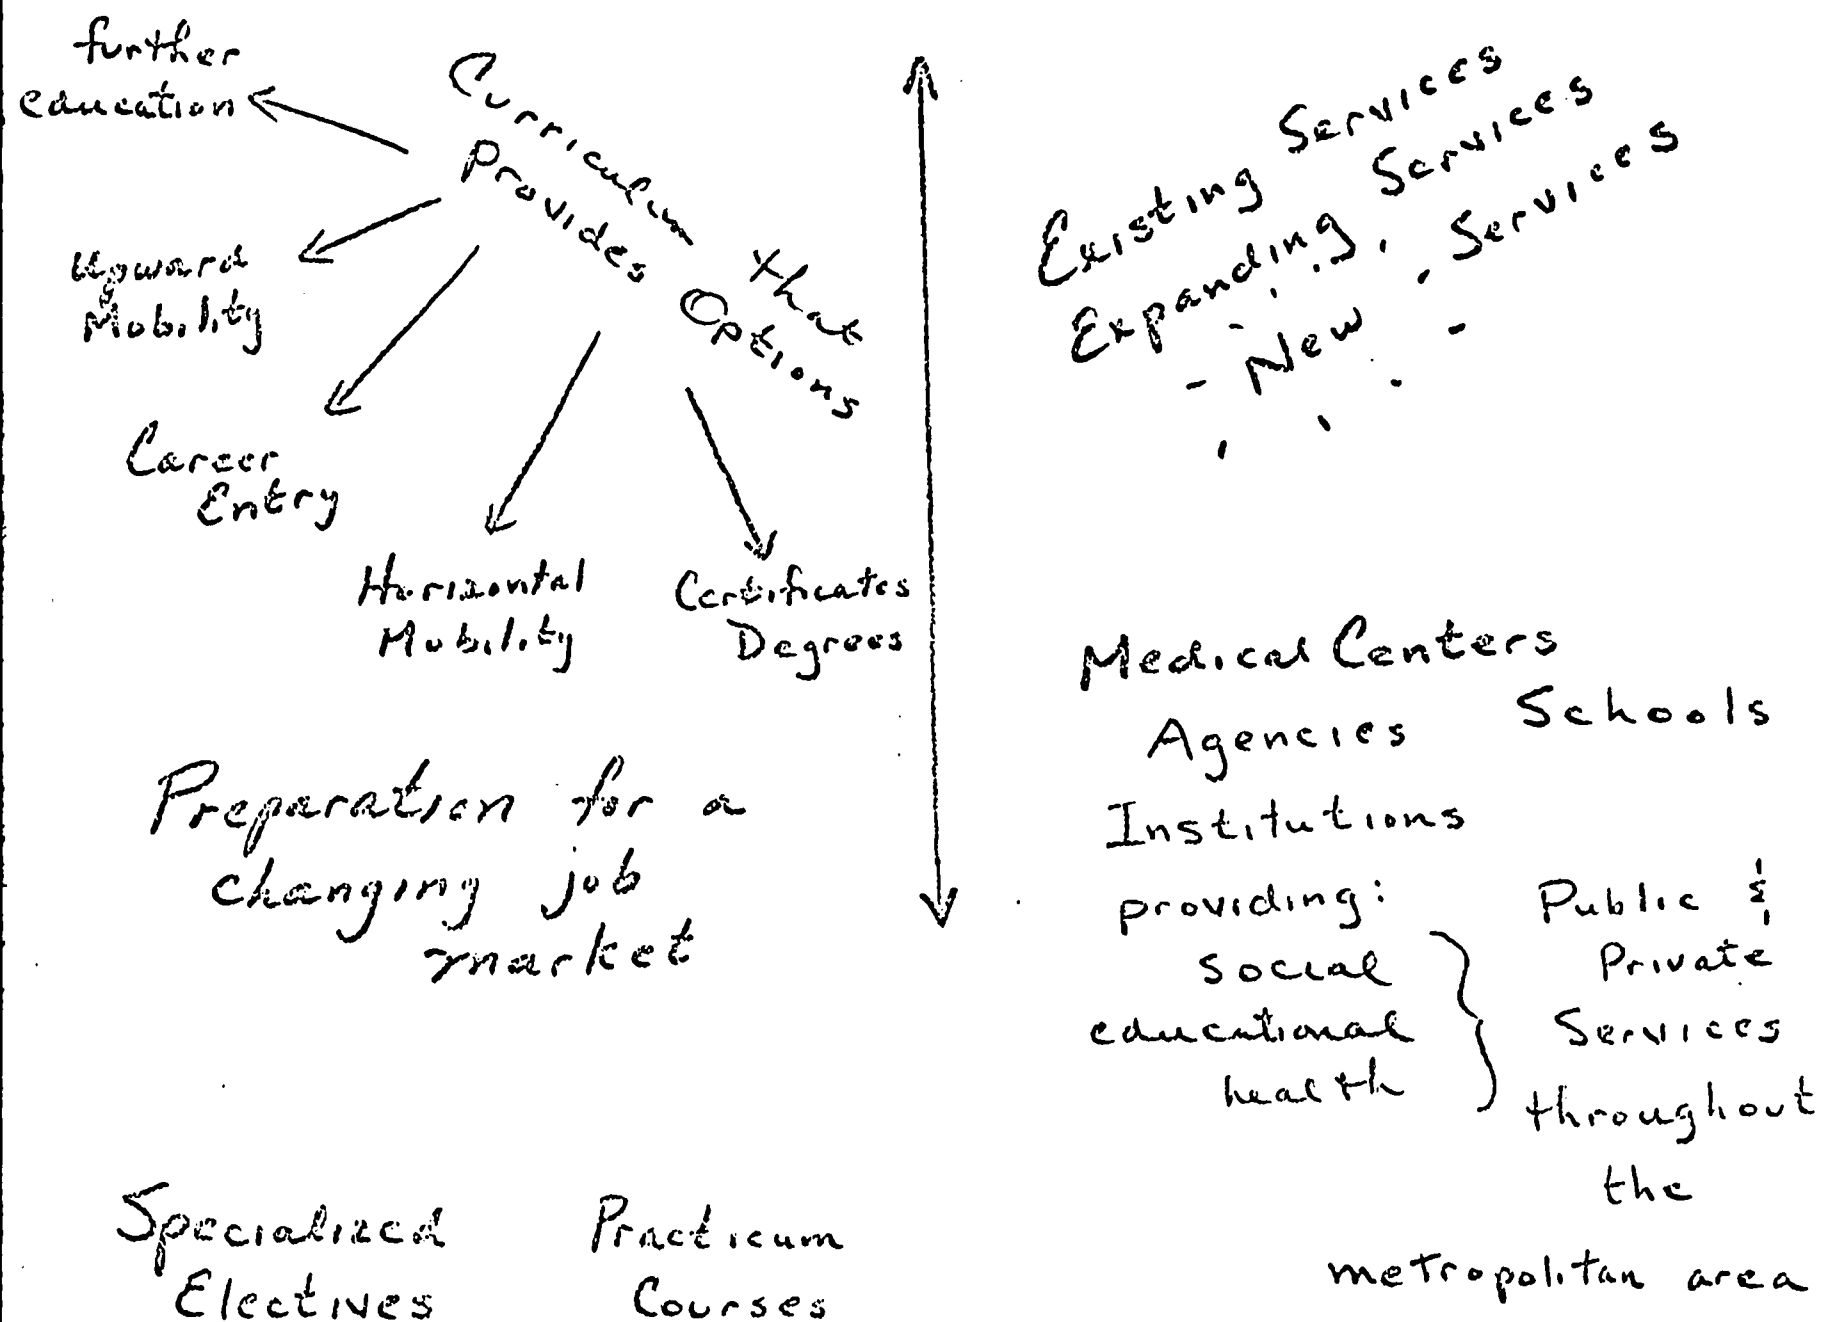 further
education
Curriculum that
Provides Options
Upward
Mobility
Career
Entry
Horizontal
Mobility
Certificates
Degrees
Preparation for a
changing job
market
Specialized
Electives
Practicum
Courses
Existing Services
Expanding Services
New Services
Medical Centers
Schools
Agencies
Institutions
providing:
social
educational
health
Public &
Private
Services
throughout
the
metropolitan area